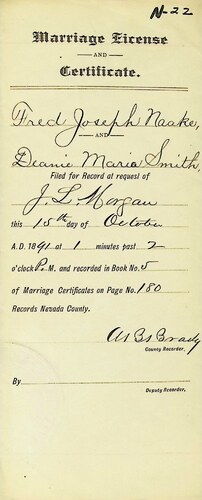 N-22
Marriage License
AND
Certificate.
Fred Joseph Naake,
AND
Deanie Maria Smith,
Filed for Record at request of
J. L. Morgan
this 15th day of October
A.D. 1891 at 1 minutes past 2
o'clock P. M, and recorded in Book No. 5
of Marriage Certificates on Page No. 180
Records Nevada County.
Brady
County Recorder,
By
Deputy Recorder,